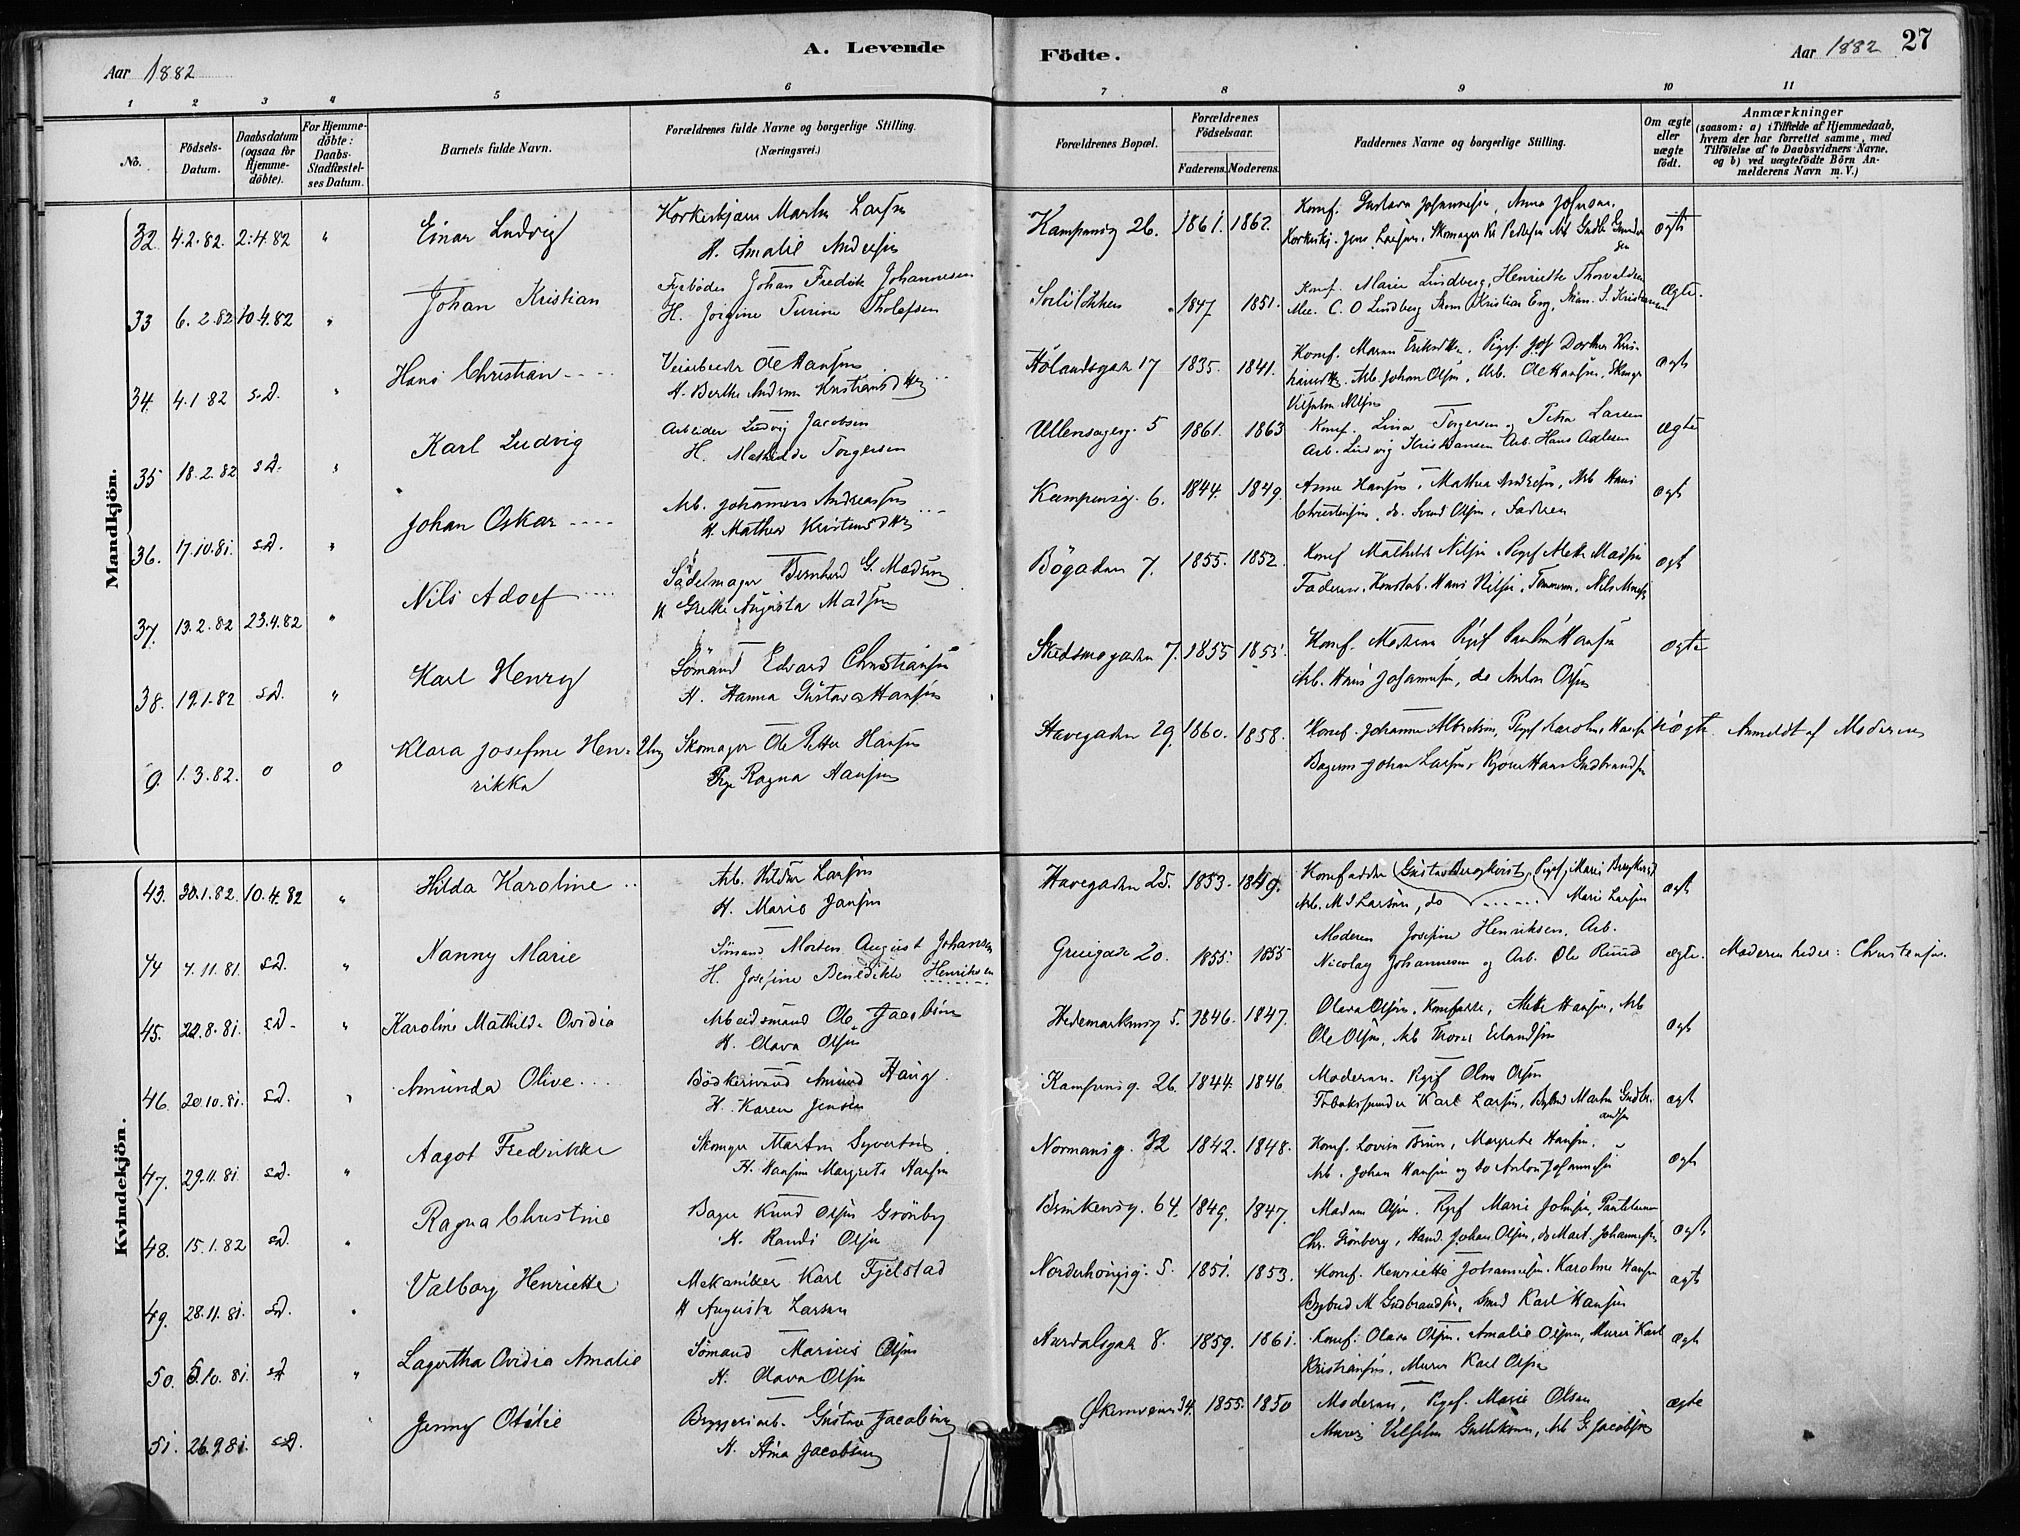 A. Levende Födte.
Aar 1882
Aar 1882 27
1 2 3 4 5 6 7 8 9 10 11
No.
Födsels-Datum.
Daabsdatum (ogsaa for Hjemme-döbte).
For Hjemme-döbte: Daabs-Stadfæstel-ses Datum.
Barnets fulde Navn.
Forældrenes fulde Navne og borgerlige Stilling. (Næringsvei.)
Forældrenes Bopæl.
Forældrenes Födselsaar.
Faderens. Moderens.
Faddernes Navne og borgerlige Stilling.
Om ægte eller uægte födt.
Anmærkninger
(saasom: a) i Tilfælde af Hjemmedaab, hvem der har forrettet samme, med Tilföielse af to Daabsvidners Navne, og b) ved uægtefödte Börn An-melderens Navn m. V.)
Mandkjön.
32. 4.2.82. 2.4.82 " Einar Ludvig
Korkeskjærer Martin Larsen
H. Amalie Andersen
Kampensg 26. 1861. 1862.
Komf. Gustava Johannesen, Anna Johnsen,
ægte
33 6.2.82 10.4.82 " Johan Kristian
Fyrböder Johan Fredrik Johannesen
H. Jörgine Turine Tholefsen
Sorlilökken 1847 1851.
Komf. Marie Lindberg, Henriette Thorvaldsen
Mec. C. O Lindberg
Ægte.
34. 4.1 82 s.D. " Hans Christian
Veiarbeider Ole Hansen
H. Berthe Andrine
Hölandsgaden 17 1835. 1841.
Arb. Johan Olsen, Arb. Ole Hansen,
Vilhelm Nilsen
ægte
35 18.2.82 s.D. " Karl Ludvig
Arbeider Ludvig Jacobsen
H. Mathilde Torgersen
Ullensagerg. 5 1861. 1863
Komf. Lina Torgersen, Petra Larsen
Arb. Ludvig Kristiansen Arb. Hans Axelsen
ægte
36. 17.10.81. s.D. " Johan Oskar
Arb. Johannes Andreassen
Kampensg. 6. 1844. 1849.
Anne Hansen, Mathea Andersen, Arb Hans
Christensen, do. Svend Olsen, Faderen
ægte
37. 13.2.82 23.4.82 " Nils Adolf
Sadelmager Bernhard G. Madsen
H Grethe Augusta Madsen
Bögaden 7. 1855. 1852.
Komf Mathilde Nilsen, Pigef Mette Madsen
Faderen, Konstab. Hans Nilsen,
ægte
38. 19.1.82 s.D. " Karl Henry
Sömand Edvard Christiansen
H. Hanna Gustava Hansen
Skedsmogaden 7. 1855 1855.
Komf. Moderen Pigef Pauline Hansen
Arb. Hans Johannesen, do Anton Olsen
ægte
9. 1.3.82. o o Klara Josefine Hen-
rikka
Ung Skomager Ole Petter Hansen
Pige Ragna Hansen
Havegaden 29. 1860. 1858.
Komf. Johanne Albertsen, Pigef Karoline Hansen
Bager Johan Larsen,
uægte. Anmeldt af Moderen
Kvindekjön.
43. 30.1.82. 10.4.82 " Hilda Karoline
Arb. Hilder Larsen
H. Marie Jansen
Havegaden 25. 1853. 1849.
Komfadder Gustav Bergkvist, Pigef. Marie Bergkvist
Arb. M S Larsen, do Marie Larsen
ægte
44 4.11.81. s.D. " Nanny Marie
Sömand Morten August Johansen
H. Josefine Benedikte Henriksen
Gruegade 20. 1855. 1855
Moderen Josefine Henriksen, Arb.
Nicolay Johannesen og Arb. Ole Ruud
ægte. Moderen heder: Christensen.
45. 20.8.81. s.D. " Karoline Mathilde Ovidia
Arbeidsmand Ole Jacobsen
H. Olava Olsen
Hedemarkensg 5. 1846. 1847.
Olava Olsen, Komfadder, Mette Hansen, Arb
Ole Olsen, Arb Thorer Erlandsen
ægte
46. 20.10.81. s.D. " Amunda Olive
Bödkersvend Amund Haug
H. Karen Jensen
Kampensg. 26. 1844. 1846
Moderen. Pigef Oline Olsen
Tobakspinder Karl Larsen, Bybud Martin Gudbr-
andsen
ægte
47. 29.11.81. s.D. " Aagot Fredrikke
Skomager Martin Syvertsen
H. Hansine Margrete Hansen
Normansg. 32 1842. 1848.
Komf. Lovise Brun, Margrete Hansen,
Arb. Johan Hansen og do Anton Johannesen
ægte
48. 15.1.82 s.D. " Ragna Christine
Bager Knud Olsen Grönby
H. Randi Olsen
Brinkensg. 64. 1849. 1847.
Madam Olsen. Pigef Marie Johnsen,
Chr. Grönberg, Hand. Johan Olsen, do Mart. Johannesen,
ægte
49. 28.11.81. s.D. " Valborg Henriette
Mekaniker Karl Fjelstad
H Augusta Larsen
Norderhougsg. 5. 1851. 1853.
Komf. Henriette Johannesen. Karoline Hansen
Bybud M Gudbrandsen, Smed Karl Hansen
ægte
50. 5.10.81. s.D. " Lagertha Ovidia Amalie
Sömand Marius Olsen
H. Olava Olsen
Aurdalsgade 8. 1859. 1861.
Komf. Olava Olsen. Amalie Olsen, Murer Karl
Kristiansen, Murer Karl Olsen
ægte
51. 26.9.81. s.D. " Jenny Otilie
Bryggeriarb. Gustav Jacobsen
H. Stina Jacobsen
Økernveien 34. 1855. 1850
Moderen, Pigef. Marie Olsen
Murer Vilhelm Gulliksen, Arb G. Jacobsen
ægte